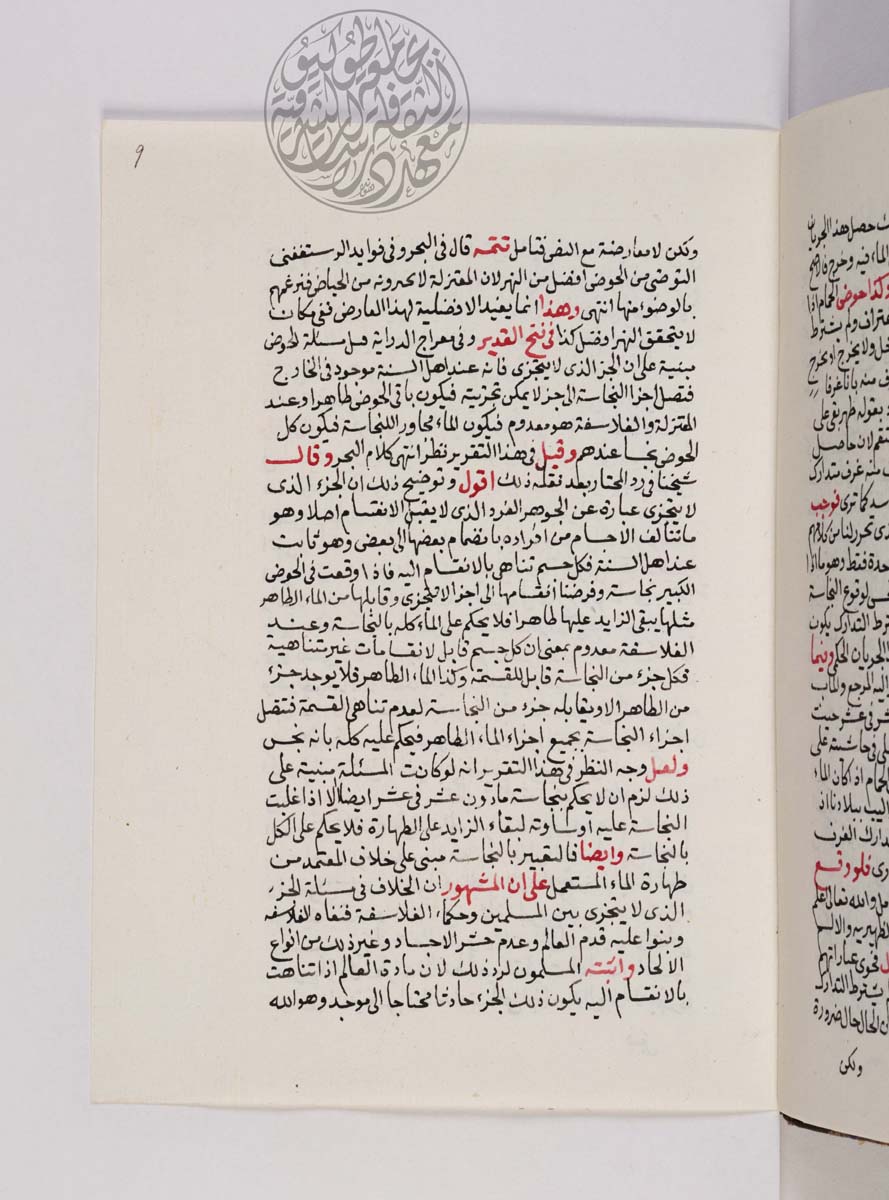 معهد دراسات الثقافة الشرقية
بجامعة طوكيو
9
ولكن لا معارضة مع النص فتامل تتمه قال في البحر وفي فوايد الرستغفني
التوضي من الحوض افضل من النهر لان المعتزلة لا يجيزونه من الحياض فنرغمهم
بالوضوء منها انتهى وهذا انما يفيد الافضلية لهذا العارض ففي مكان
لا يتحقق النهر افضل كذا في فتح القدير وفي معراج الدراية قيل مسئلة الحوض
مبنية على ان الجزء الذي لا يتجزى فانه عند اهل السنة موجود في الخارج
فتصل اجزا النجاسة الى جزء لا يمكن تجزيته فيكون باقي الحوض طاهرا وعند
المعتزلة والفلاسفة هو معدوم فيكون الماء مجاور اللنجاسة فيكون كل
الحوض نجسا عندهم وقيل في هذا التقرير نظر انتهى كلام البحر وقال
شيخنا في رد المحتار بعد نقله ذلك اقول وتوضيح ذلك ان الجزء الذي
لا يتجزى عبارة عن الجوهر الفرد الذي لا يقبل الانقسام اصلا وهو
ما تتالف الاجسام من افراده بانضمام بعضها الى بعض وهو ثابت
عند اهل السنة فكل جسم تناهي بالانقسام اليه فاذا وقعت في الحوض
الكبير نجاسة وفرضنا انقسامها الى اجزا لا تتجزى وقابلها من الماء الطاهر
مثلها يبقى الزايد عليها طاهرا فلا يحكم على الماء كله بالنجاسة وعند
الفلاسفة معدوم بمعنى ان كل جسم قابل لانقسامات غير متناهية
فكل جزء من النجاسة قابل للقسمة وكذا الماء الطاهر فلا يوجد جزء
من الطاهر الا ويقابله جزء من النجاسة لعدم تناهي القسمة فتتصل
اجزاء النجاسة بجميع اجزاء الماء الطاهر فيحكم عليه كله بانه نجس
ولعل وجه النظر في هذا التقرير انه لو كانت المسئلة مبنية على
ذلك لزم ان لا يحكم بنجاسة ما دون عشر في عشر ايضا الا اذا غلبت
النجاسة عليه او ساوته لبقاء الزايد على الطهارة فلا يحكم على الكل
بالنجاسة وايضا فالتعبير بالنجاسة مبني على خلاف المعتمد من
طهارة الماء المستعمل على ان المشهور ان الخلاف في مسئلة الجزء
الذي لا يتجزى بين المسلمين وحكماء الفلاسفة فنفاه الفلاسفه
وبنوا عليه قدم العالم وعدم حشر الاجساد وغير ذلك من انواع
الالحاد واثبته المسلمون لرد ذلك لان مادة العالم اذا تناهت
بالانقسام اليه يكون ذلك الجزء حادثا محتاجا الى موجد وهو الله
ولكن